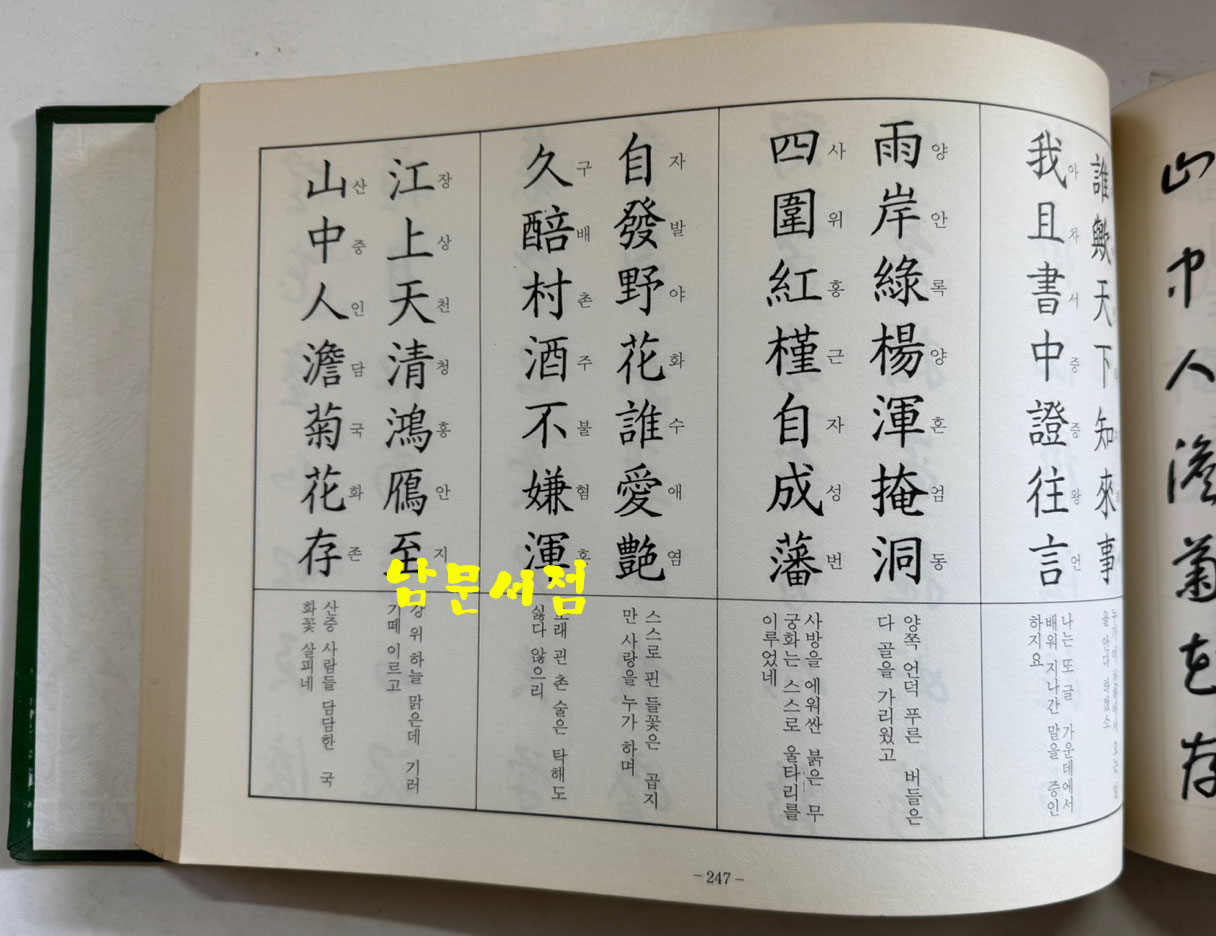 山中人澹菊花存
誰歟天下知來事
我且書中證往言
아차서중증왕언
雨岸綠楊渾掩洞
양안록양혼엄동
四圍紅槿自成藩
사위홍근자성번
自發野花誰愛艶
자발야화수애염
久醅村酒不嫌渾
구배촌주불혐
江上天清鴻鴈至
장상천청홍안지
山中人澹菊花存
산중인담국화존
을 안다 하겠소
나는 또 글 가운데에서
배워 지나간 말을 증인
하지요
양쪽 언덕 푸른 버들은
다 골을 가리웠고
사방을 에워싼 붉은 무
궁화는 스스로 울타리를
이루었네
스스로 핀 들꽃은 곱지
만 사랑을 누가 하며
오래 괸 촌 술은 탁해도
싫다 않으리
강 위 하늘 맑은데 기러
기떼 이르고
산중 사람들 담담한 국
화꽃 살피네
남문서점
-247-